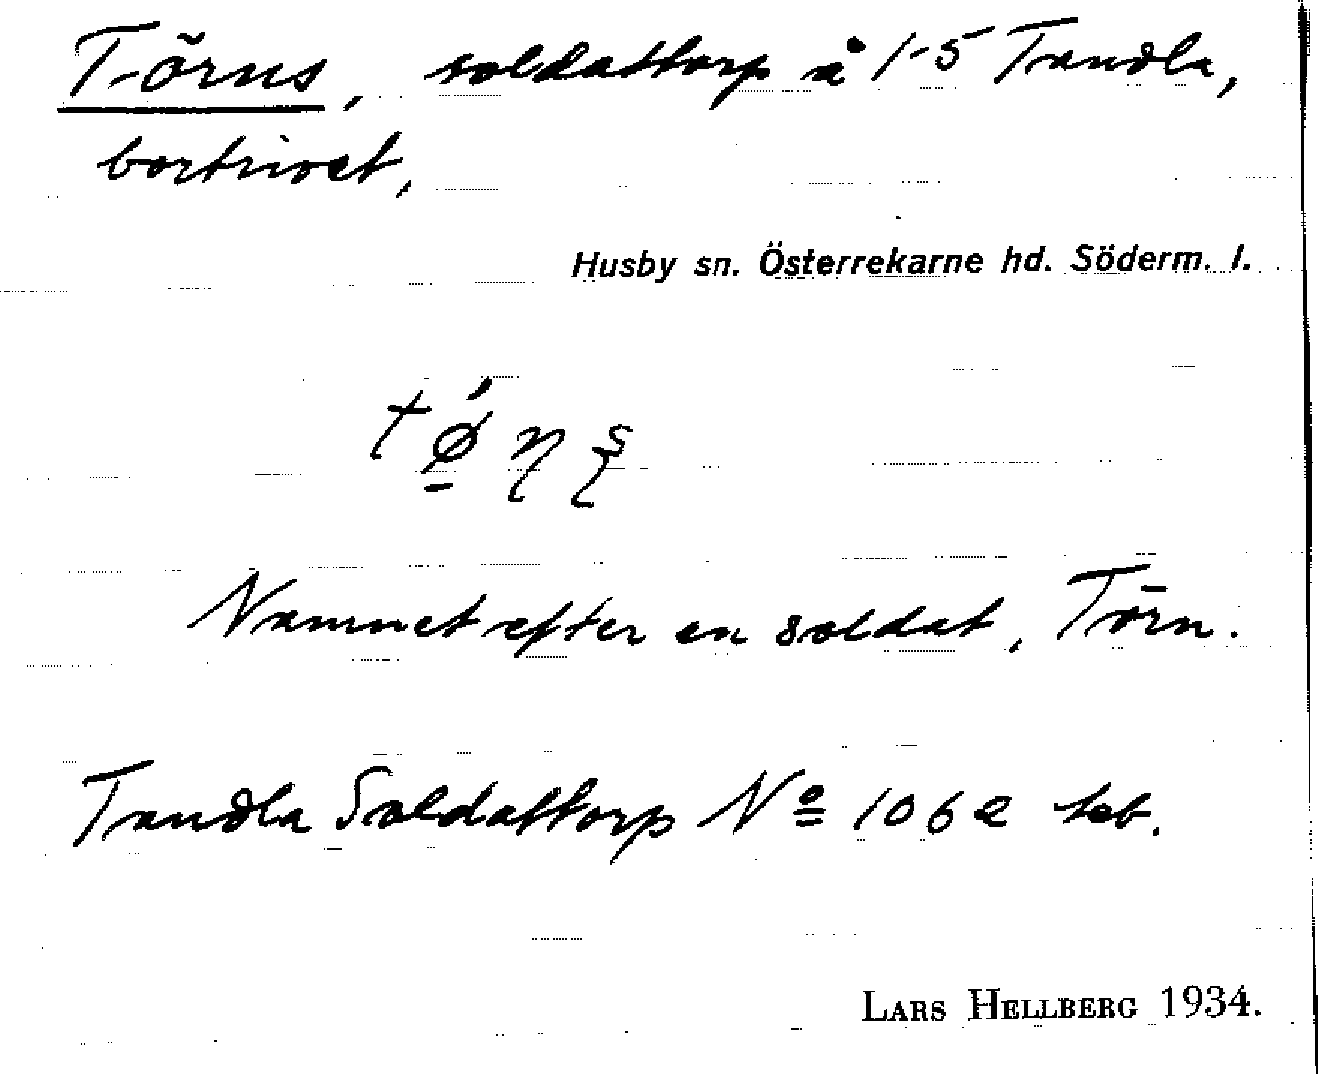 Törns, soldattorp å 1-5 Tandla,
bortrivet,
Husby sn. Österrekarne hd. Söderm. l.
Namnet efter en soldat, Törn.
Tandla Soldattorp Nº 106 a jeb.
LARS HELLBERG 1934.